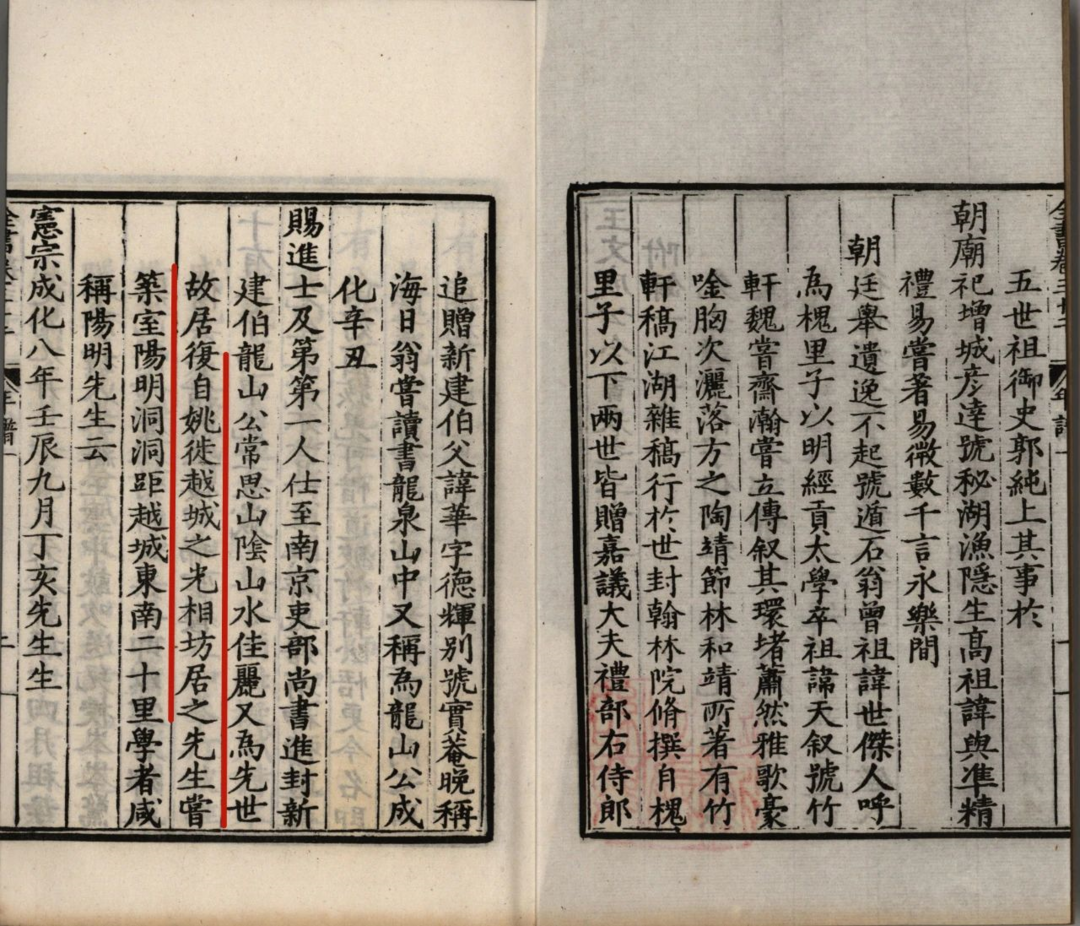 五世祖御史郭純上其事於
朝廟祀增城彥達號秘湖漁隱生高祖諱與準精
禮易嘗著易微數千言永樂間
朝廷舉遺逸不起號遁石翁曾祖諱世傑人呼
為槐里子以明經貢太學卒祖諱天叙號竹
軒魏嘗齋瀚嘗立傳叙其環堵蕭然雅歌豪
唫胸次灑落方之陶靖節林和靖所著有竹
軒稿江湖雜稿行於世封翰林院脩撰自槐
里子以下兩世皆贈嘉議大夫禮部右侍郎
追贈新建伯父諱華字德輝别號實菴晚稱
海日翁嘗讀書龍泉山中又稱為龍山公成
化辛丑
賜進士及第第一人仕至南京吏部尚書進封新
建伯龍山公常思山陰山水佳麗又為先世
故居復自姚徙越城之光相坊居之先生嘗
築室陽明洞洞距越城東南二十里學者咸
稱陽明先生云
憲宗成化八年壬辰九月丁亥先生生